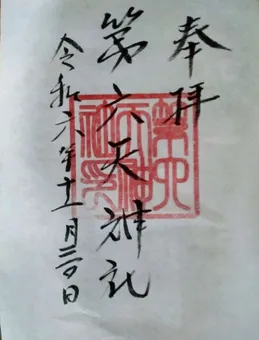 奉拝
第六天神社
令和六年十一月三〇日
第六
天神